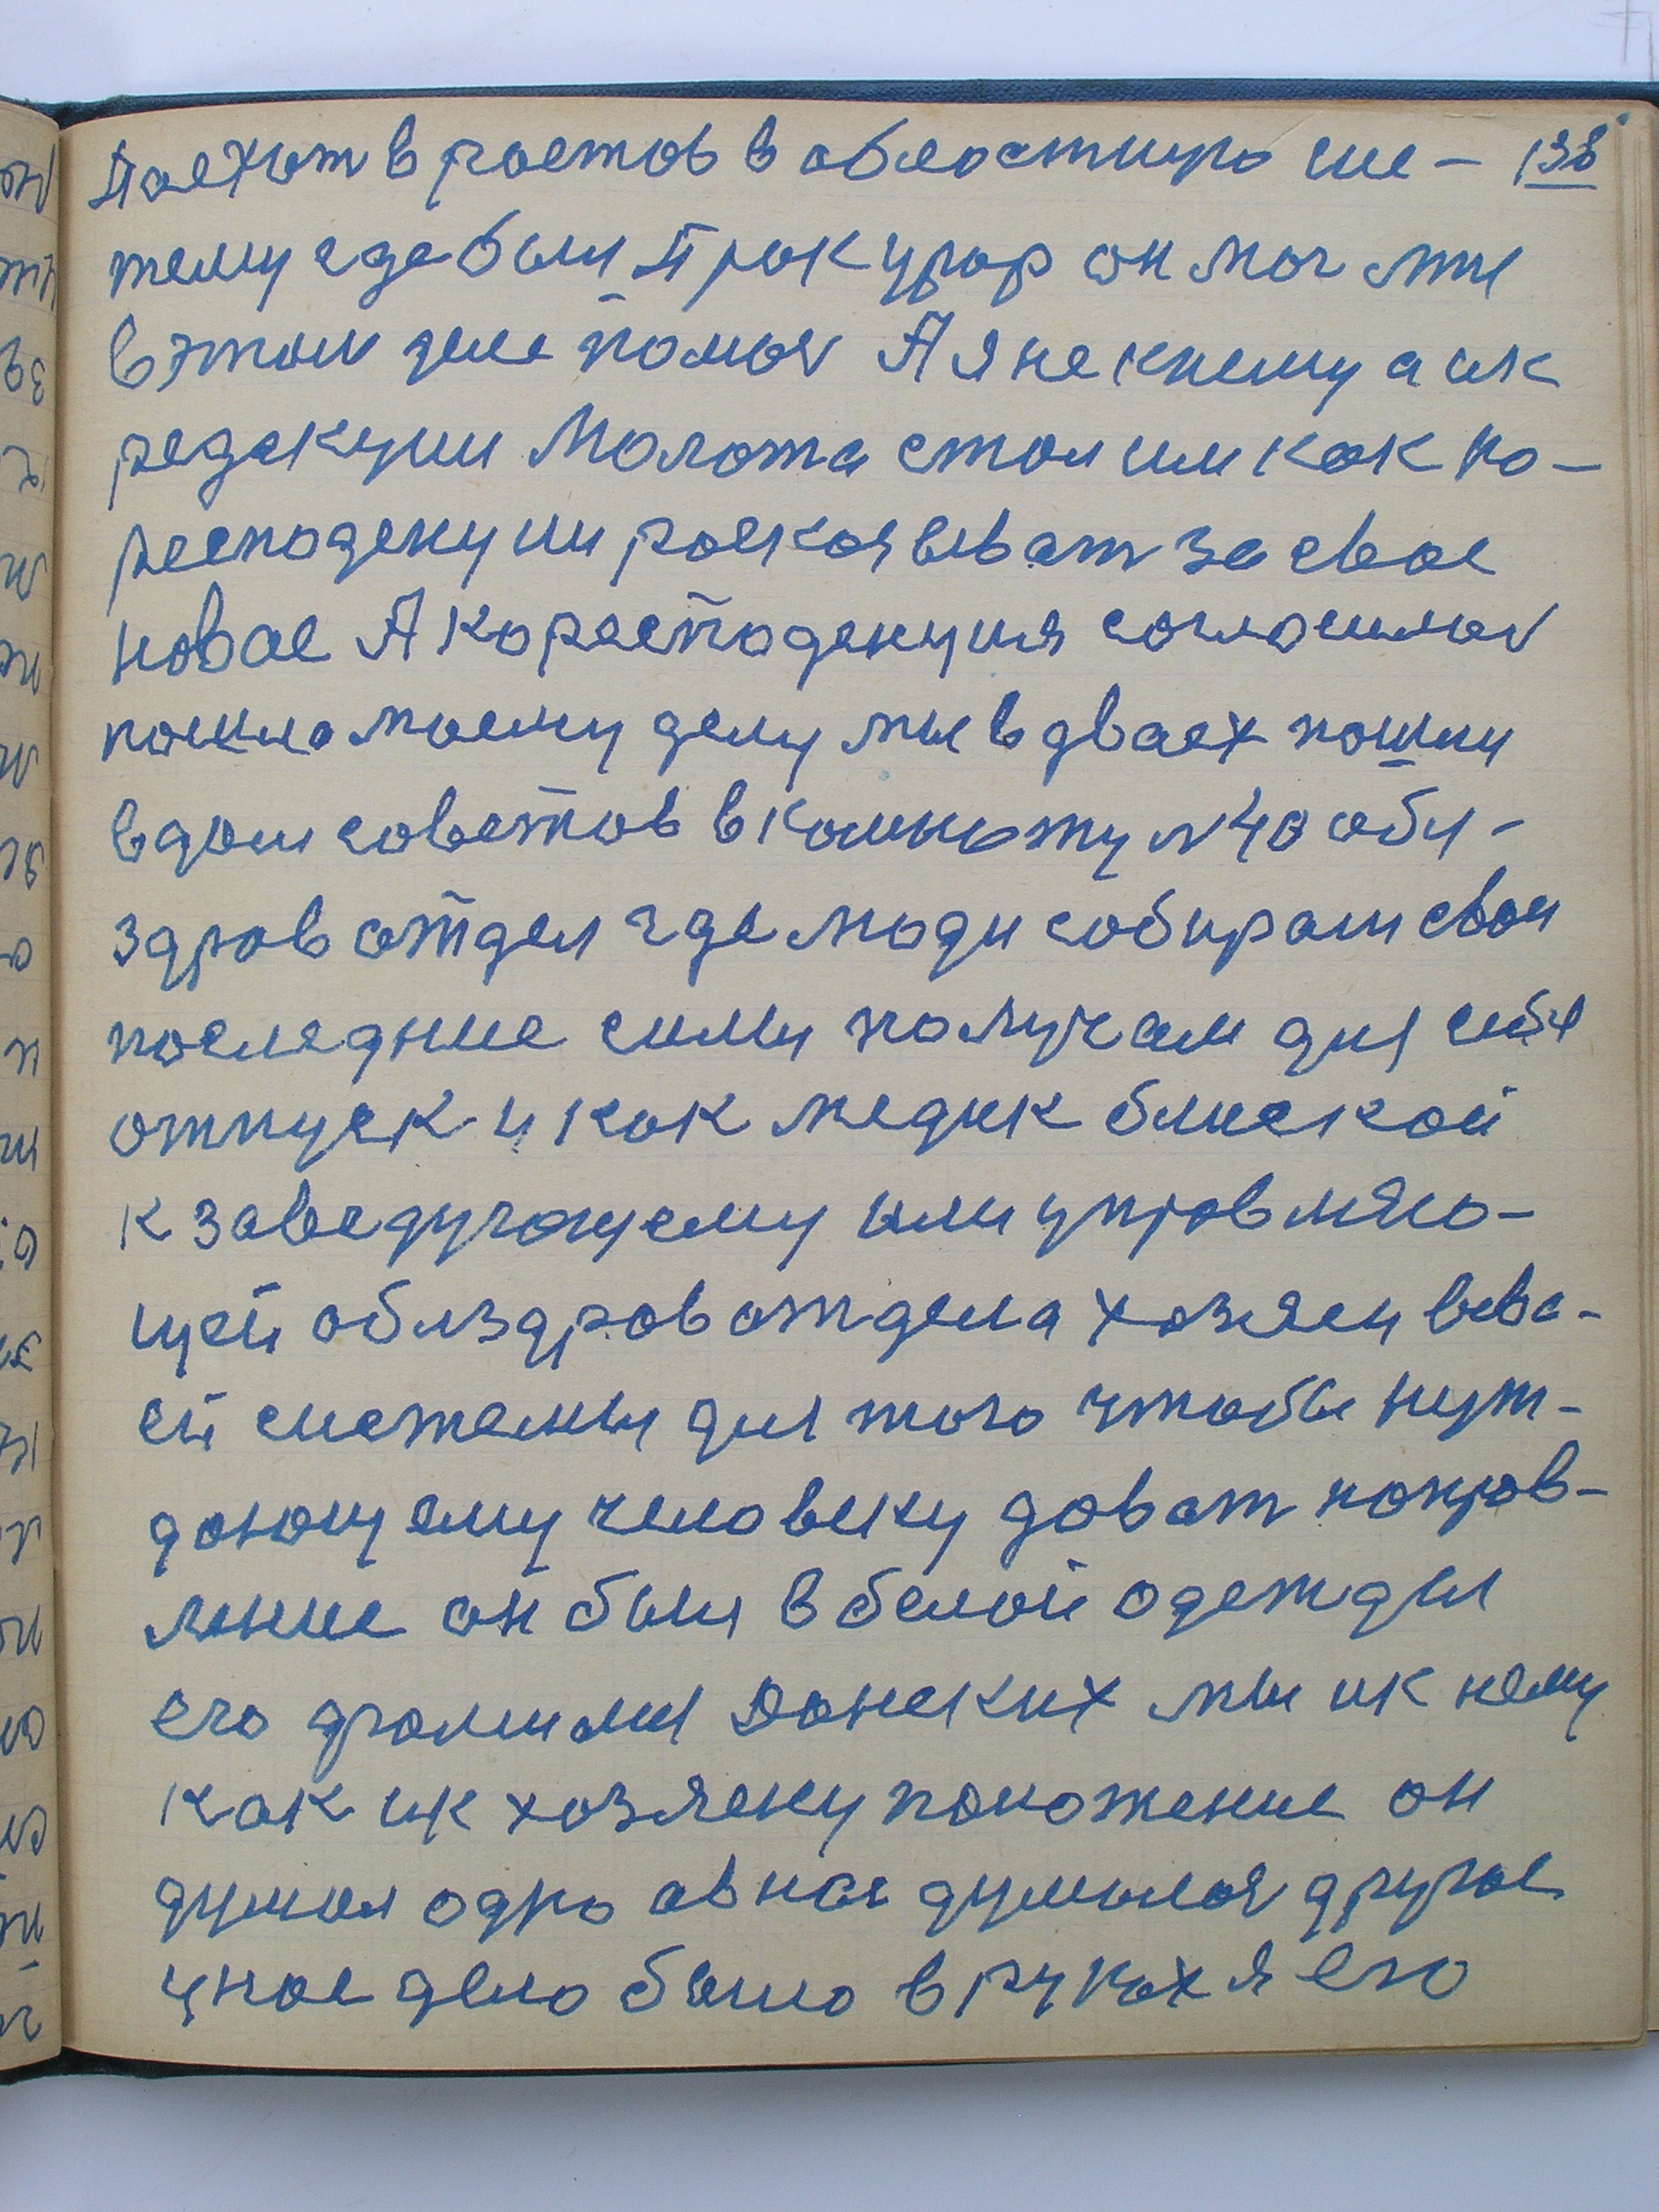 Поехат в ростов в областную сис- 138
тему где был Прокурор он мог мне
в этом деле помоч А я не к нему а ик
редакции Молота стал им как ко-
респоденции роскозыват за свое
новое А коресподенция согласилас
пошла моему делу мы в двоех пошли
в дом советов в комноту №40 обл-
здрав отдел где люди собирали свои
последние силы получали для себя
отпуск и как медик близкой
к заведующему или управляю-
щей облздравотдела хозяен всве-
ей системы для того чтобы нуж-
дающему человеку доват направ-
ление он был в белой одежды
его фамилия Донских мы ик нему
как ик хозяену положение он
думал одно а в нас думалос другое
у нас дело было в руках я его